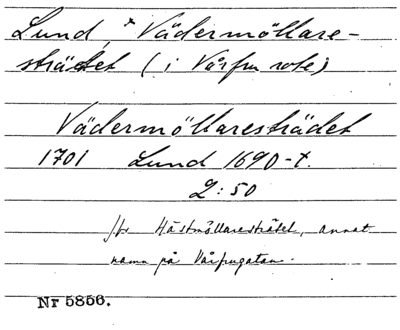 Lund, * Vädermöllare-
strädet (i Vårfru rote)
Vädermöllaresträdet
1701 Lund 1690-t.
2:50
Jfr Hästmöllaresträtet, annat
namn på Vårfrugatan.
Nr 5856.